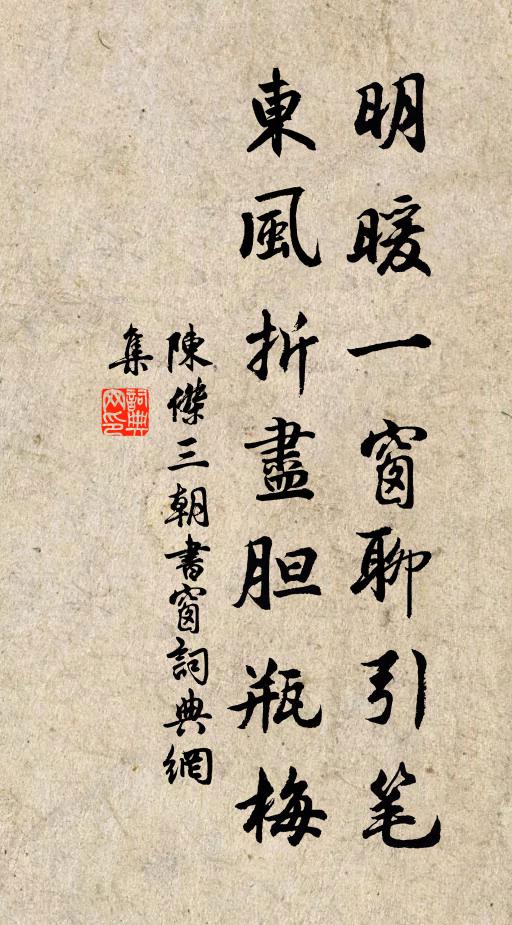 明暖一窗聊引笔
東風折盡胆瓶梅
陳傑三朝書窗詞典網
集
詞典網印